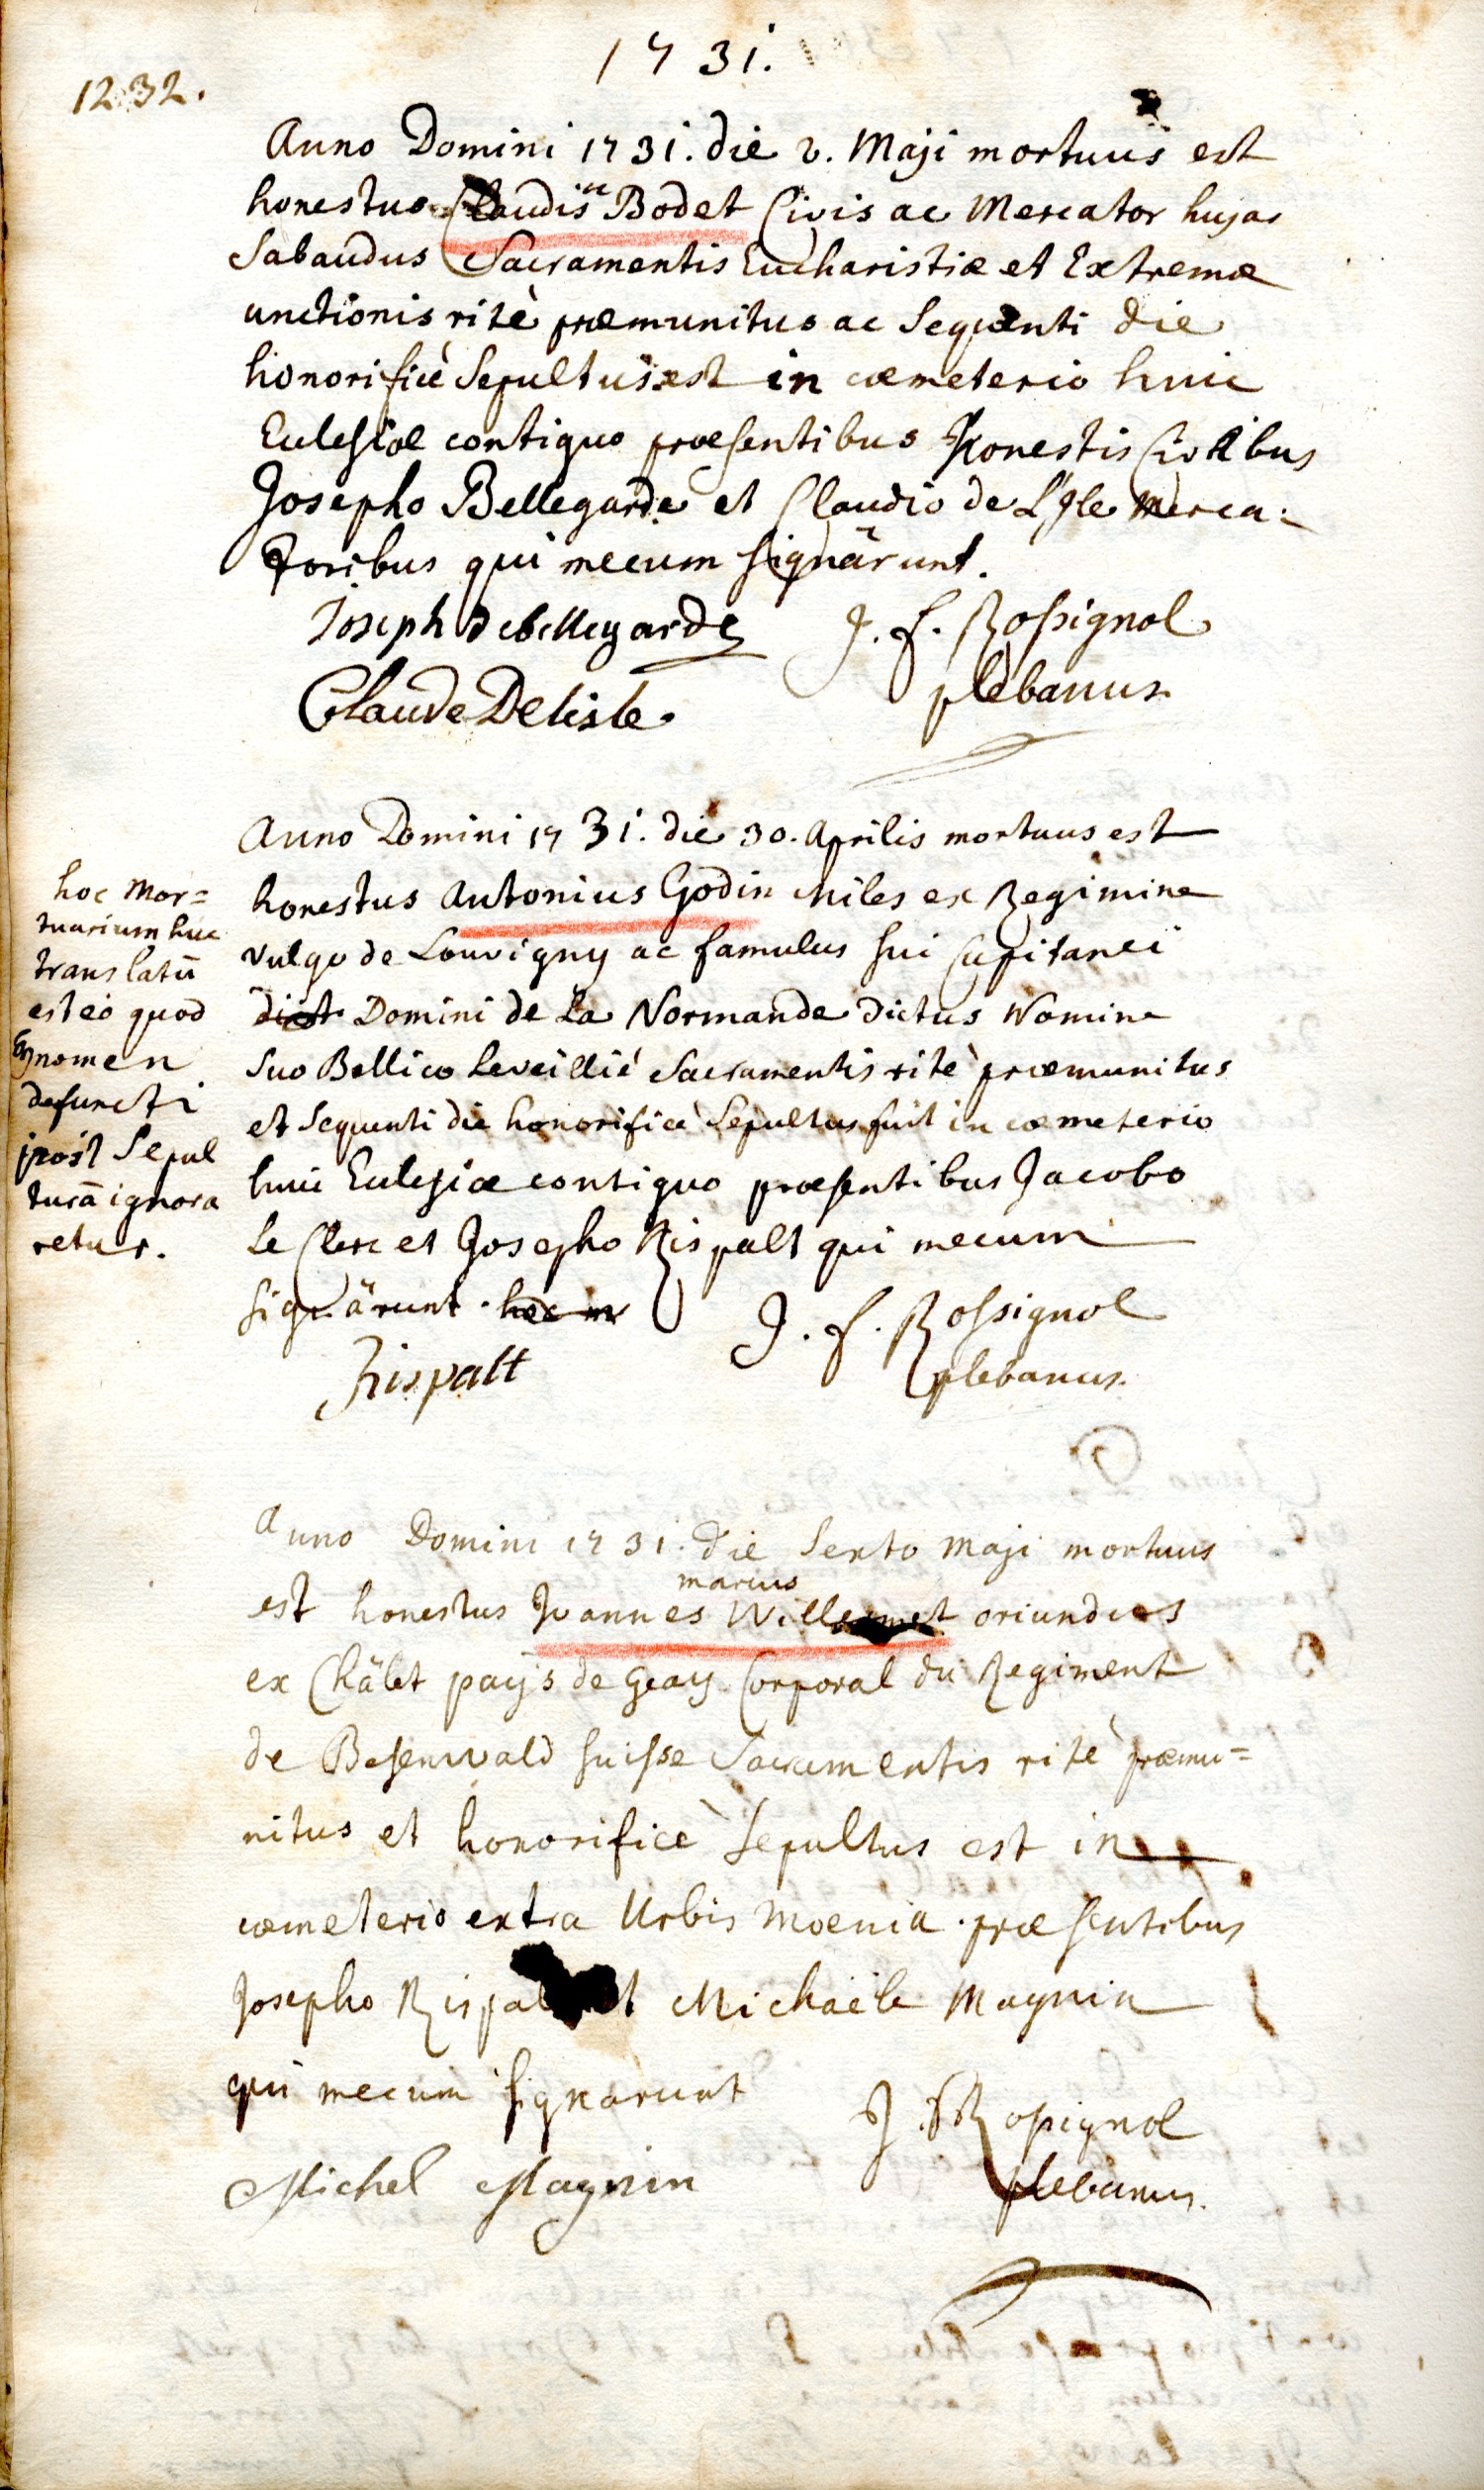 1731.
1232.
Anno Domini 1731. die 2. Maji mortuus est
honestus Claudius Bodet Civis ac Mercator hujas
Sabaudus Sacramentis Eucharistiæ et Extremæ
unctionis ritè præmunitus ac Sequenti die
honorificè Sepultus est in cœmeterio huic
Ecclesiæ contiguo præsentibus honestis Civibus
Josepho Bellegarde et Claudio de L'Jle Merca:
toribus qui mecum signârunt.
Joseph debellegarde J. f. Rossignol
Claude Delisle plebanus
Anno Domini 1731. die 30. Aprilis mortuus est
honestus Antonius Godin Miles ex Regimine
vulgo de Louvigny ac famulus sui Capitanei
Domini de La Normande dictus Nomine
Suo Bellico Leveillié Sacramentis ritè præmunitus
et Sequenti die honorificè Sepultus fuit in cœmeterio
huic Ecclesiæ contiguo præsentibus Jacobo
Le Clerc et Josepho Rispalt qui mecum
signârunt.
J. f. Rossignol
Rispalt plebanus.
hoc Mor=
tuarium huc
translatū
est eò quod
cognomen
defuncti
post Sepul
turā ignora
retur.
Anno Domini 1731. die Sexto Maji mortuus
marius
est honestus Joannes Willermet oriundus
ex Châlet paÿs de Geay Corporal du Regiment
de Besenwald suisse Sacramentis ritè præmu=
nitus et honorificè Sepultus est in
cœmeterio extra Urbis Moenia præsentibus
Josepho Rispalt et Michaële Magnin
qui mecum signarunt
J. f Rossignol
Michel Magnin plebanus.